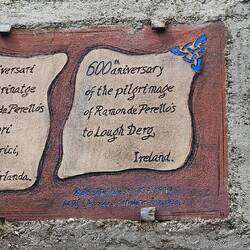 versari
rinatge
de Perellós
ori
rici,
rlanda.
600th aniversary
of the pilgrimage
of Ramon de Perellós
to Lough Derg,
Ireland.